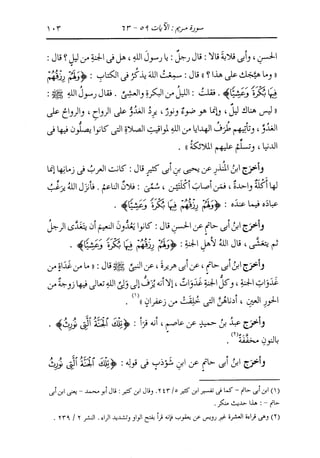 سورة مريم : الآيات ٥٩ - ٦٣ ١٠٣
الحسنِ ، وأبى قِلابةَ قالا : قال رجلٌ : يا رسولَ اللهِ ، هل فى الجنةِ من ليلٍ ؟ قال :
« وما هيَّجك على هذا ؟ » قال : سمِعتُ اللهَ يذكُرُ فى الكتابِ : ﴿وَلَهُمْ رِزْقُهُمْ
فِيهَا بُكْرَةً وَعَشِيًّا﴾ . فقلتُ : الليلُ من البكرةِ والعشىِّ . فقال رسولُ اللهِ ﷺ :
« ليس هناك ليلٌ ، وإنما هو ضوءٌ ونورٌ ، يرِدُ الغدوُّ على الرواحِ ، والرواحُ على
الغدوِّ ، وتأتيهم طُرَفُ الهدايا من اللهِ لمواقيتِ الصلاةِ التى كانوا يصلُّون فيها فى
الدنيا ، وتسلِّمُ عليهم الملائكةُ » .
وأخرَج ابنُ المنذرِ عن يحيى بنِ أبى كثيرٍ قال : كانت العربُ فى زمانِها إنما
لها أَكْلةٌ واحدةٌ ، فمَن أصاب أكْلتَين ، سُمِّىَ : فلانٌ الناعمُ . فأنزل اللهُ يرغِّبُ
عبادَه فيما عندَه : ﴿وَلَهُمْ رِزْقُهُمْ فِيهَا بُكْرَةً وَعَشِيًّا﴾ .
وأخرَج ابنُ أبى حاتمٍ عن الحسنِ قال : كانوا يَعُدُّون النعيمَ أن يتغدَّى الرجلُ
ثم يتعشَّى ، قال اللهُ لأهلِ الجنةِ : ﴿وَلَهُمْ رِزْقُهُمْ فِيهَا بُكْرَةً وَعَشِيًّا﴾ .
وأخرَج ابنُ أبى حاتمٍ ، عن أبى هريرةَ ، عن النبىِّ ﷺ قال : « ما من غَداةٍ من
غَدَواتِ الجنةِ ، وكلُّ الجنةِ غَدَواتٌ ، إلا أنه يُزَفُّ إلى ولىِّ اللهِ تعالى فيها زوجةٌ من
الحورِ العينِ ، أدناهنَّ التى خُلِقت من زعفرانٍ »(١) .
وأخرَج عبدُ بنُ حميدٍ عن عاصمٍ ، أنه قرَأ : ﴿تِلْكَ الْجَنَّةُ الَّتِي نُورِثُ﴾ .
بالنونِ مخفَّفةً(٢) .
وأخرَج ابنُ أبى حاتمٍ عن ابنِ شوذبٍ فى قولِه : ﴿تِلْكَ الْجَنَّةُ الَّتِي نُورِثُ
(١) ابن أبى حاتم - كما فى تفسير ابن كثير ٥/ ٢٤٣. وقال ابن كثير : قال أبو محمد - يعنى ابن أبى
حاتم - : هذا حديث منكر .
(٢) وهى قراءة العشرة غير رويس عن يعقوب فإنه قرأ بفتح الواو وتشديد الراء . النشر ٢ / ٢٣٩ .